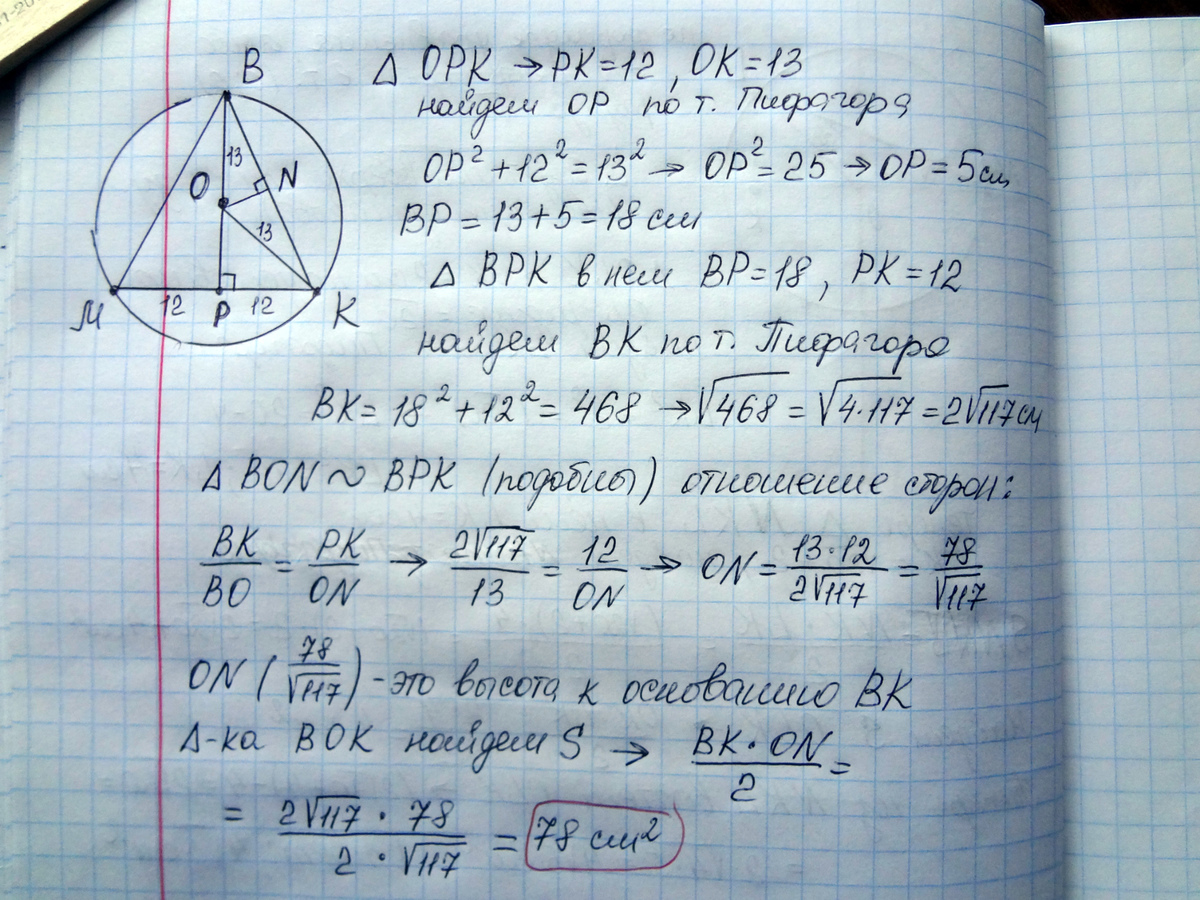 B
13
O
N
13
M
12
P
12
K
Δ OPK → PK=12, OK=13
найдем OP по т. Пифагора
OP² + 12² = 13² → OP² = 25 → OP = 5см
BP = 13+5 = 18 см
Δ BPK в нем BP=18, PK=12
найдем BK по т. Пифагора
BK = 18² + 12² = 468 → √468 = √4·117 = 2√117 см
Δ BON ~ BPK (подобны) отношение сторон:
BK/BO = PK/ON → 2√117/13 = 12/ON → ON = 13·12/2√117 = 78/√117
ON (78/√117) - это высота к основанию BK
Δ-ка BOK найдем S → BK·ON/2 =
= 2√117 · 78/2 · √117 = 78 см²